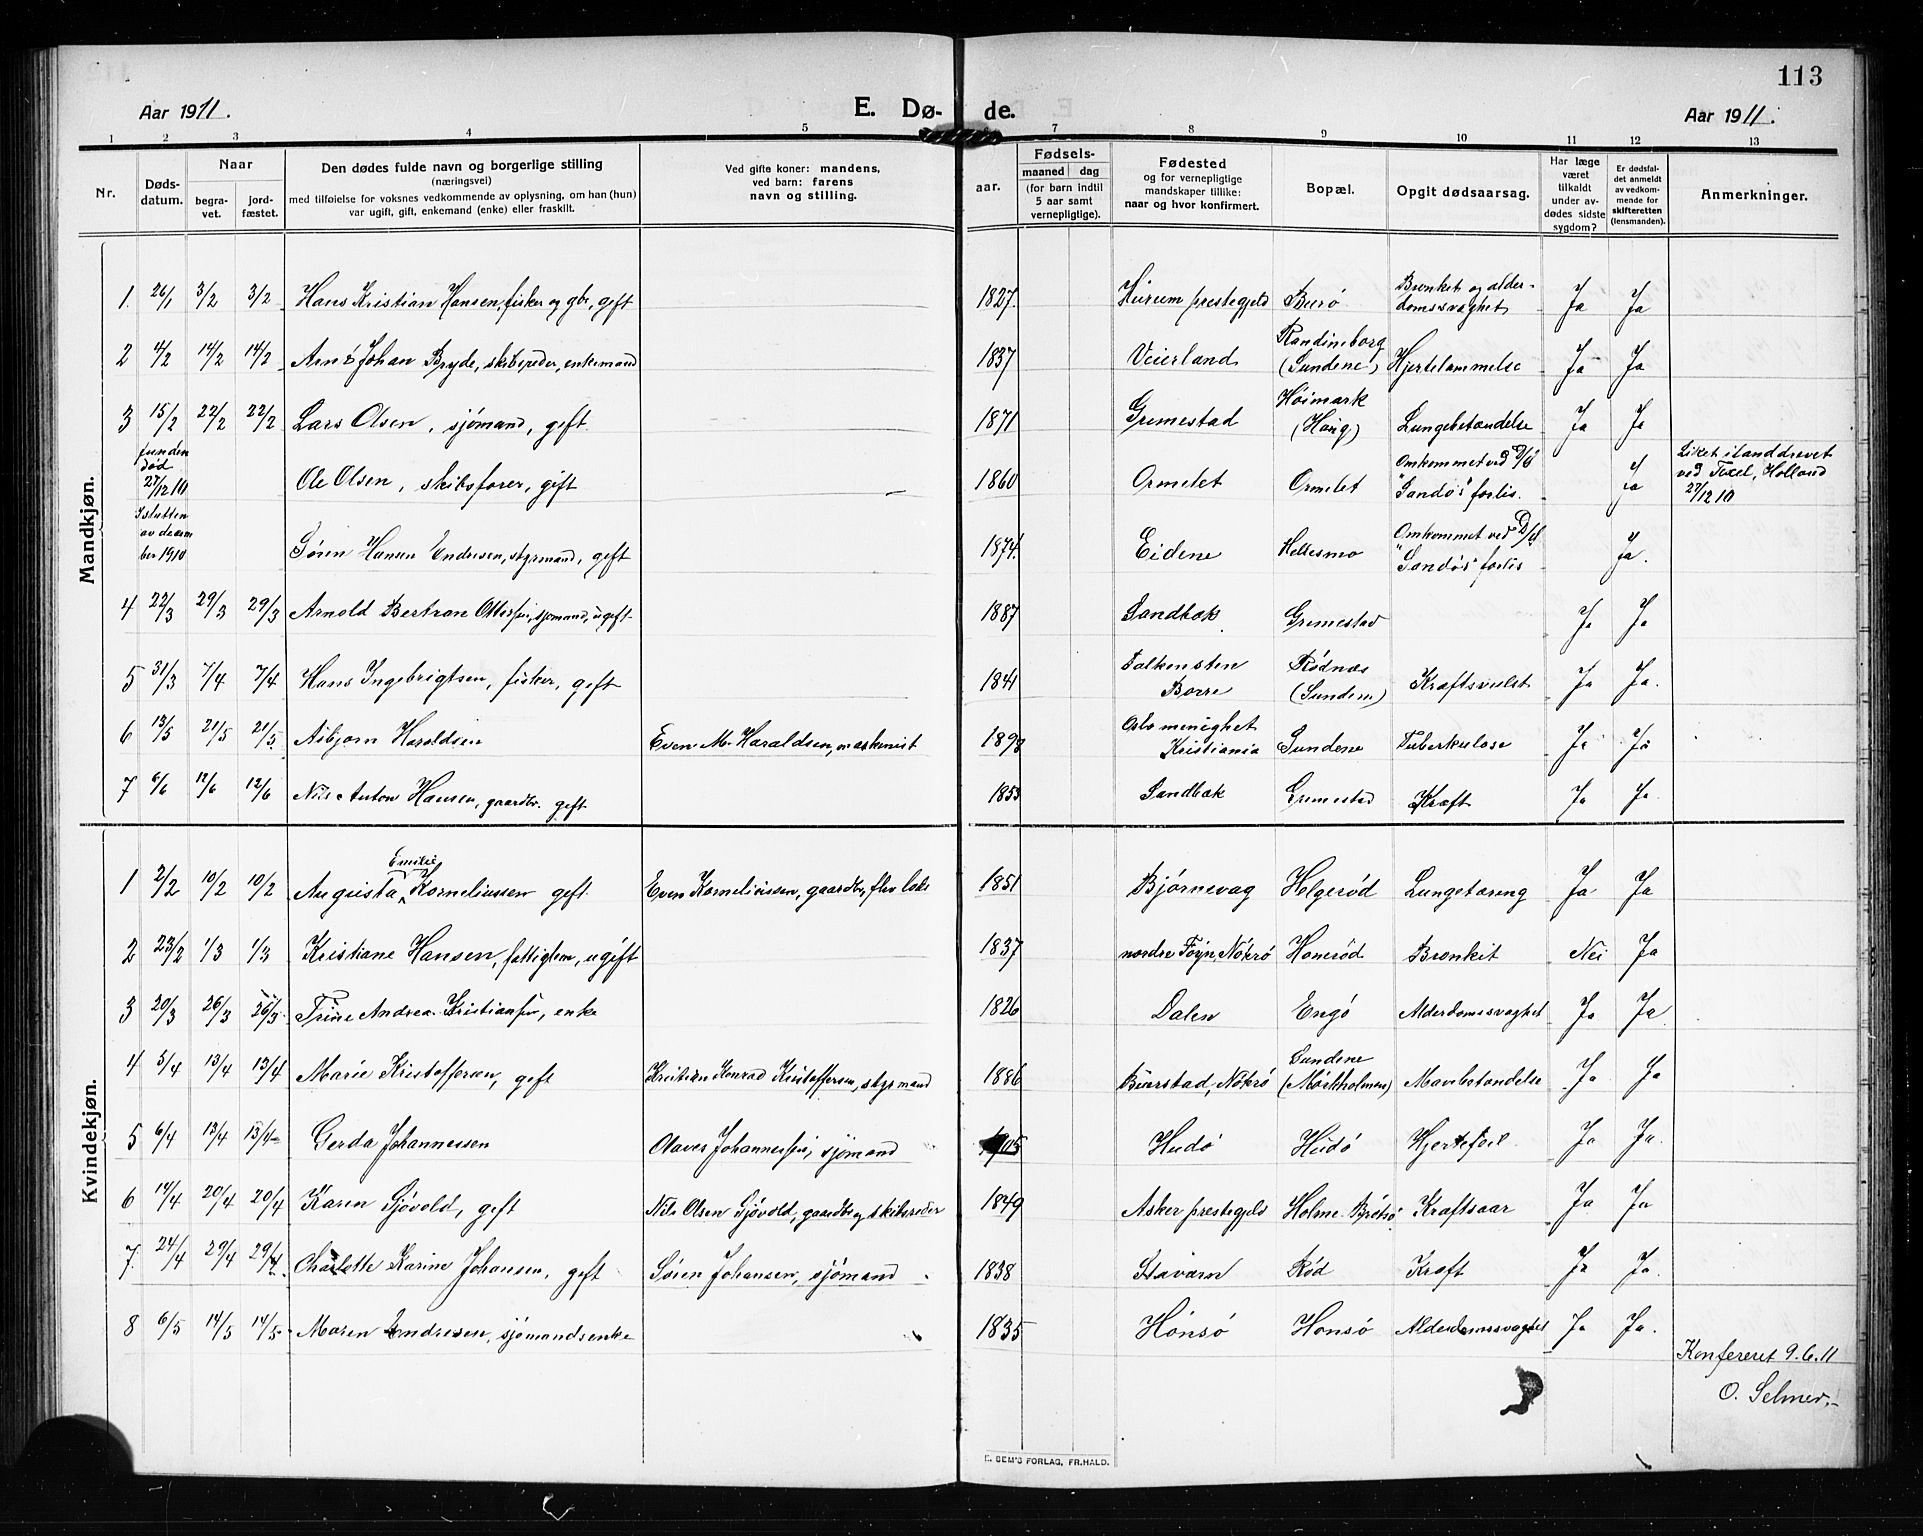 113
Aar 1911.
E. Dø- de.
Aar 1911.
1 2 3 4 5 7 8 9 10 11 12 13
Nr.
Dødsdatum.
Naar
begravet.
jordfæstet.
Den dødes fulde navn og borgerlige stilling
(næringsvei)
med tilføielse for voksnes vedkommende av oplysning, om han (hun)
var ugift, gift, enkemand (enke) eller fraskilt.
Ved gifte koner: mandens,
ved barn: farens
navn og stilling.
aar.
Fødsels-
maaned dag
(for børn indtil
5 aar samt
vernepligtige).
Fødested
og for vernepligtige
mandskaper tillike:
naar og hvor konfirmert.
Bopæl.
Opgit dødsaarsag.
Har læge
været
tilkaldt
under avdødes sidste
sygdom?
Er dødsfaldet anmeldt
av vedkommende for
skifteretten
(lensmanden).
Anmerkninger.
Mandkjøn.
1. 26/1 3/2 3/2 Hans Kristian Hansen, fisker og gbr., gift 1827. Hurum prestegjeld Buerø Bronket og alderdomssvaghet Ja Ja
2 4/2 14/2 14/2 Arnt Johan Bryde, skibsreder, enkemand 1837 Veierland Randineborg (Sundene) Hjertelammelse Ja Ja
3 15/2 22/2 22/2 Lars Olsen, sjømand, gift 1871 Grimestad Høimark (Haug) Lungebetændelse Ja Ja
funden død 27/12 10 Ole Olsen, skibsfører, gift 1860 Ormelet Ormelet Omkommet ved D/S "Sandøs" forlis. Ja Liket ilanddrevet ved Texel, Holland 27/12 10
I slutten av december 1910 Søren Hansen Endresen, styrmand, gift 1874. Eidene Hellesmo Omkommet ved D/S "Sandøs" forlis Ja.
4 22/3 29/3 29/3 Arnold Bertran Ottersen, sjømand, ugift 1887 Sandbæk Grimestad Ja Ja
5 31/3 7/4 7/4 Hans Ingebrigtsen, fisker, gift 1841 Falkensten Borre Rødnæs (Sundene) Kræftsvulst Ja Ja.
6 13/5 21/5 21/5 Asbjørn Haraldsen Even M. Haraldsen, maskinist 1898 Oslo menighet Kristiania Sundene Tuberkulose Ja Ja
7 6/6 12/6 12/6 Nils Anton Hansen, gaardbr. gift 1855 Sandbæk Grimestad Kræft Ja Ja.
Kvindekjøn.
1 2/2 10/2 10/2 Augusta Emilie Korneliussen gift Even Korneliussen, gaardbr, 1851 Bjørnevaag Helgerød Lungetæring Ja Ja
2 23/2 1/3 1/3 Kristiane Hansen, fattiglem, ugift 1837 nordre Føyn, Nøtrø Honerød Bronkit Nei Ja
3 20/3 26/3 26/3 Trine Andrea Kristiansen, enke 1826 Dalen Engø Alderdomssvaghet Ja Ja
4 5/4 13/4 13/4 Marie Kristoffersen, gift Kristian Konrad Kristoffersen, styrmand 1886 Buerstad, Nøtrø Sundene (Mørkholmen) Mavebetændelse Ja Ja
5 6/4 13/4 13/4 Gerda Johannessen Olaves Johannessen, sjømand 1905 Hudø Hudø Hjertefeil Ja Ja.
6 14/4 20/4 20/4 Karen Gjøvold, gift Nils Olsen Gjøvold, gaardbr og skibsreder 1849 Asker prestegjeld Holme Brøtsø Kræftsaar Ja Ja
7. 24/4 29/4 29/4 Charlotte Karine Johansen, gift Søren Johansen, sjømand 1838 Staværn Rød Kræft Ja Ja.
8 6/5 14/5 14/5 Maren Andresen, sjømandsenke 1835 Hønsø Honsø Alderdomssvaghet Ja Ja.
Konfereret 9.6.11
O. Selmer.
E. SEM'S FORLAG, FR.HALD.